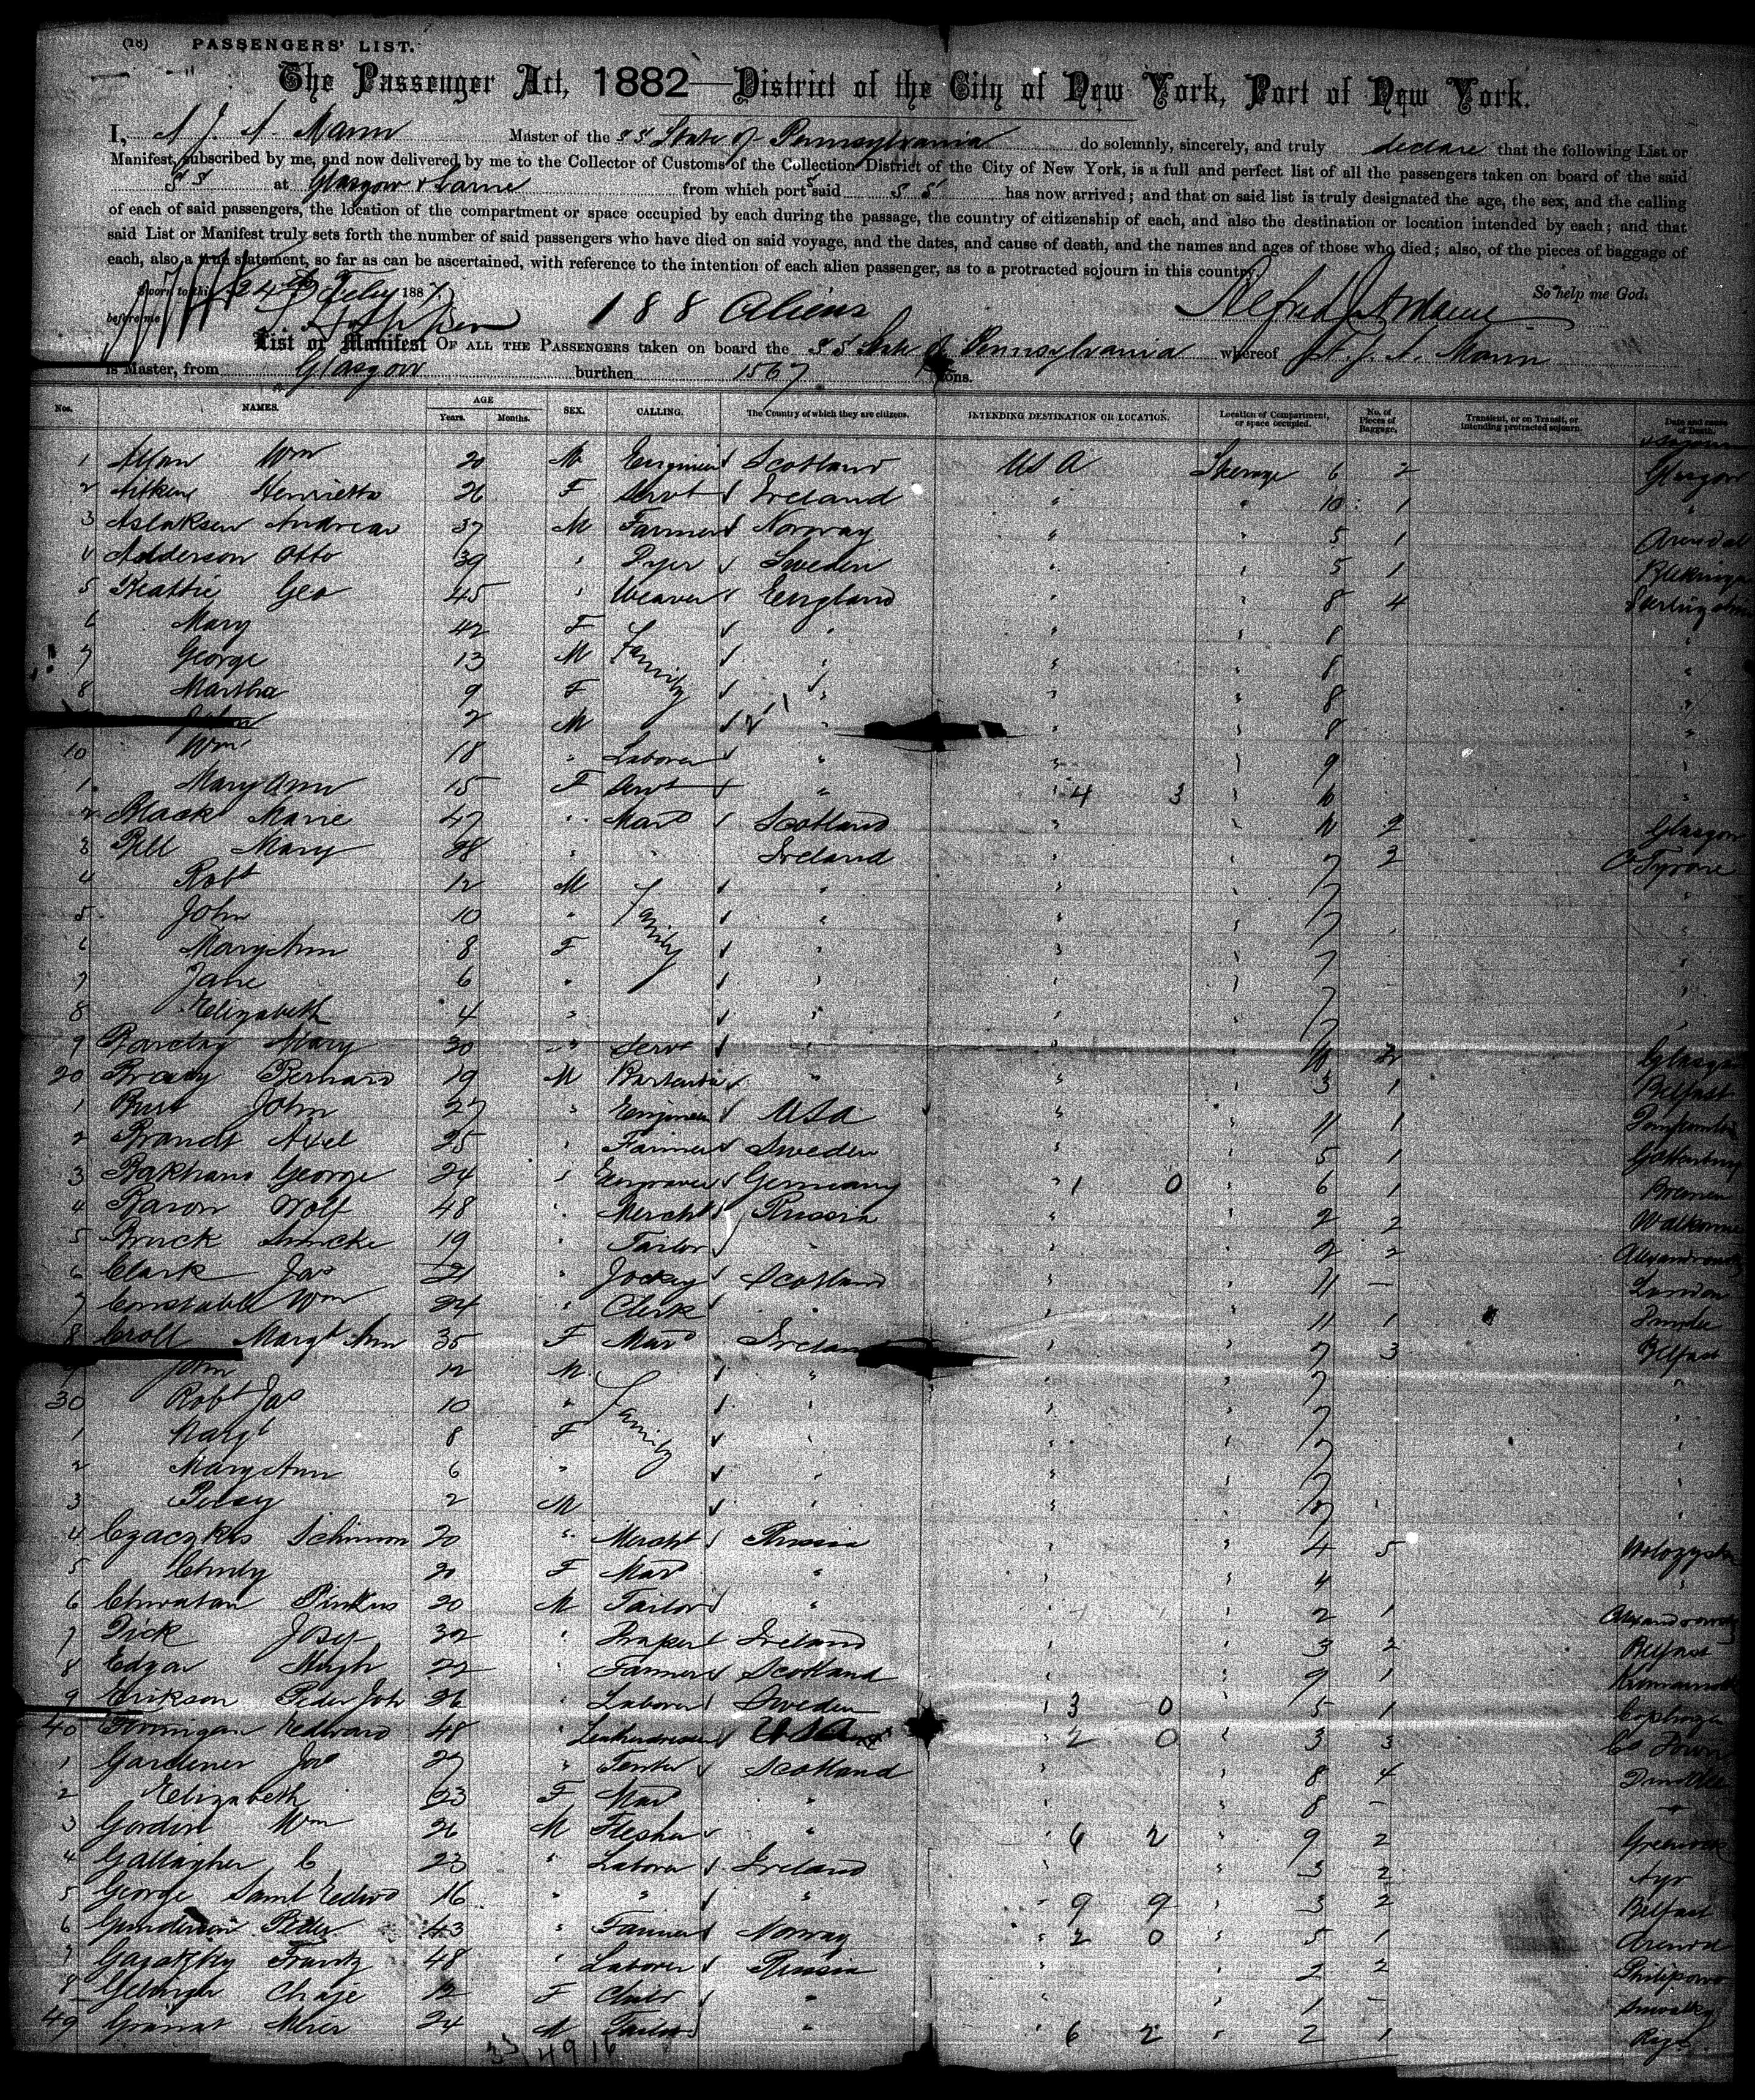 (18) PASSENGERS' LIST.
The Passenger Act, 1882—District of the City of New York, Port of New York.
I, A. J. A. Mann Master of the SS State of Pennsylvania do solemnly, sincerely, and truly declare that the following List or
Manifest, subscribed by me, and now delivered by me to the Collector of Customs of the Collection District of the City of New York, is a full and perfect list of all the passengers taken on board of the said
SS at Glasgow & Larne from which ports said SS has now arrived; and that on said list is truly designated the age, the sex, and the calling
of each of said passengers, the location of the compartment or space occupied by each during the passage, the country of citizenship of each, and also the destination or location intended by each; and that
said List or Manifest truly sets forth the number of said passengers who have died on said voyage, and the dates, and cause of death, and the names and ages of those who died; also, of the pieces of baggage of
each, also a true statement, so far as can be ascertained, with reference to the intention of each alien passenger, as to a protracted sojourn in this country.
Sworn to this 24th Feby 1887 So help me God.
before me 188 Aliens
List or Manifest OF ALL THE PASSENGERS taken on board the SS State of Pennsylvania whereof A. J. A. Mann
is Master, from Glasgow burthen 1567 tons.
Nos. NAMES. AGE Years. Months. SEX. CALLING. The Country of which they are citizens. INTENDING DESTINATION OR LOCATION. Location of Compartment, or space occupied. No. of Pieces of Baggage. Transient, or on Transit, or intending protracted sojourn. Date and cause of Death.
1 Allan Wm 20 M Engineer Scotland USA Steerage 6 2 Glasgow
2 Aitken Henrietta 26 F Servt Ireland " " 10 1 "
3 Aslaksen Andreas 37 M Farmer Norway " " 5 1 Arendal
4 Anderson Otto 39 " Dyer Sweden " " 5 1
5 Beattie Geo 45 " Weaver England " " 8 4
6 Mary 42 F Family " " " 8 "
7 George 13 M " " " 8 "
8 Martha 9 F " " " 8 "
John 2 M " " " 8 "
10 Wm 18 " Laborer " " " 9 "
1 Mary Ann 15 F Servt " " 4 3 " 10 "
2 Black Marie 47 " Mard Scotland " " 10 2 Glasgow
3 Bell Mary 38 " " Ireland " " 7 3 Co Tyrone
4 Robt 12 M Family " " " 7 "
5 John 10 " " " " 7 "
6 Mary Ann 8 F " " " 7 "
7 Jane 6 " " " " 7 "
8 Elizabeth 4 " " " " 7 "
9 Barclay Mary 30 " Servt " " " 10 2 Glasgow
20 Brady Bernard 19 M " " " 3 1 Belfast
1 Burt John 27 " Engineer USA " " 11 1
2 Brandt Axel 25 " Farmer Sweden " " 5 1
3 George 24 " Engraver Germany " 1 0 " 6 1 Bremen
4 Baron Wolf 48 " Mercht Russia " " 2 2
5 Bruck 19 " Tailor " " " 2 2
6 Clark Jas 21 " Jockey Scotland " " 11 — London
7 Constable Wm 24 " Clerk " " " 11 1 Dundee
8 Croll Margt Ann 35 F Mard Ireland " " 7 3 Belfast
9 John 12 M Family " " " 7 "
30 Robt Jas 10 " " " " 7 "
1 Margt 8 F " " " 7 "
2 Mary Ann 6 " " " " 7 "
3 Percy 2 M " " " 7 "
4 Schimon 20 " Mercht Russia " " 4 5
5 20 F Mard " " " 4 "
6 Pinkus 20 M Tailor " " " 2 1
7 Dick Josep 32 " Draper Ireland " " 3 2 Belfast
8 Edgar Hugh 22 " Farmer Scotland " " 9 1
9 Erikson Peder Joh 26 " Laborer Sweden " 3 0 " 5 1
40 Finnigan Edward 48 " USA " 2 0 " 3 3 Co Down
1 Gardener Jas 27 " Tenter Scotland " " 8 4
2 Elizabeth 23 F Mard " " " 8 —
3 Gordon Wm 26 M Flesher " " 6 2 " 9 2 Greenock
4 Gallagher C 23 " Laborer Ireland " " 3 2 Ayr
5 George Saml Edwd 16 " " " " 9 9 " 3 2 Belfast
6 Gunderson Peder 43 " Farmer Norway " 2 0 " 5 1 Arendal
7 Frantz 48 " Laborer Russia " " 2 2
8 Chaje 12 F Child " " " 1 —
49 Meier 24 M Tailor " " 6 2 " 2 1 Riga